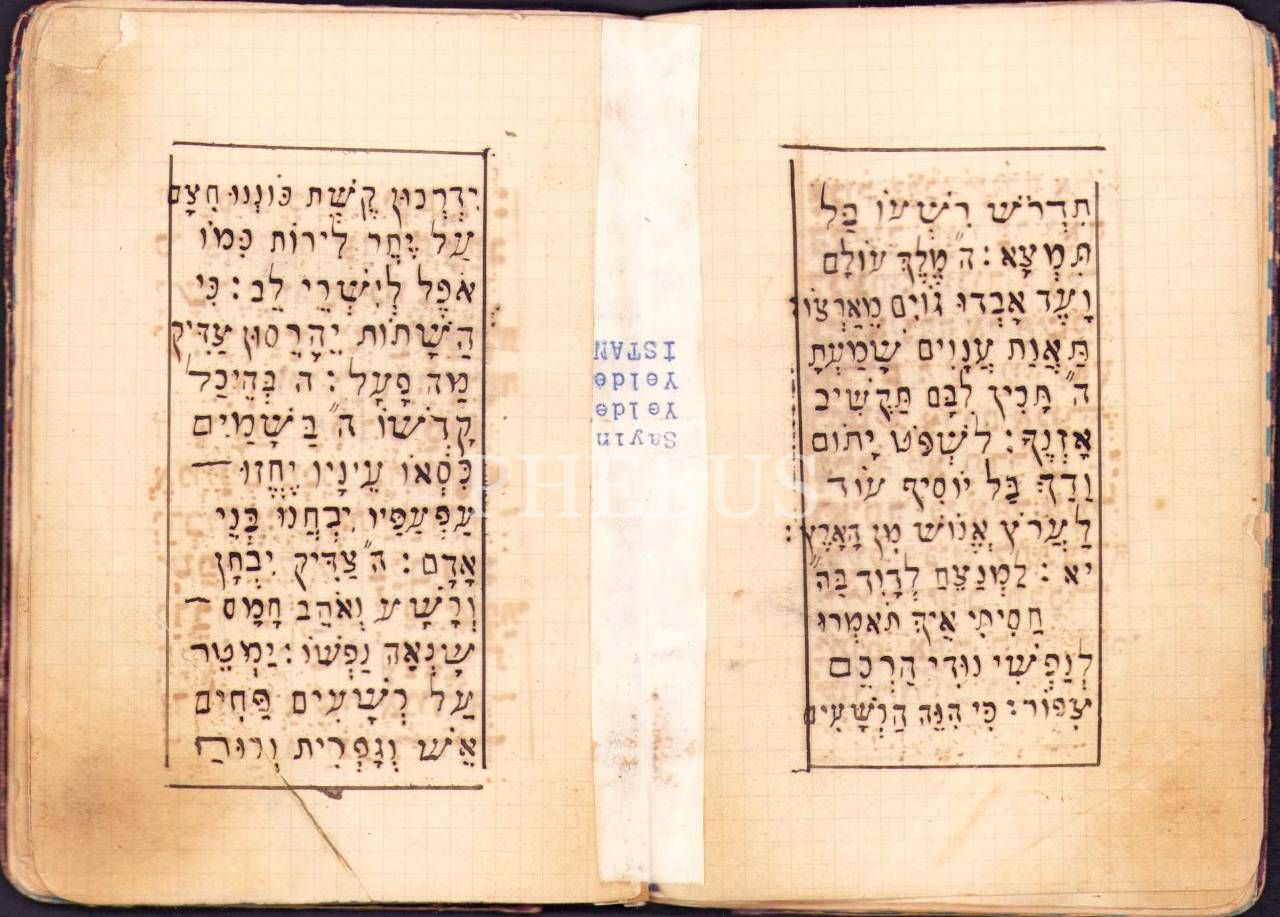 תִדְרֹשׁ רִשְׁעוֹ בַּל
תִּמְצָא : ה" מֶלֶךְ עוֹלָם
וָעֶד אָבְדוּ גוֹיִם מֵאַרְצוֹ :
תַּאֲוַת עֲנָוִים שָׁמַעְתָּ
ה" תָּכִין לִבָּם תַּקְשִׁיב
אָזְנֶךָ : לִשְׁפֹּט יָתוֹם
וָדַךְ בַּל יוֹסִיף עוֹד
לַעֲרֹץ אֱנוֹשׁ מִן הָאָרֶץ :
יא : לַמְנַצֵּחַ לְדָוִד בַּה"
חָסִיתִי אֵיךְ תֹּאמְרוּ
לְנַפְשִׁי נוּדִי הַרְכֶם
צִפּוֹר : כִּי הִנֵּה הָרְשָׁעִים
יִדְרְכוּן קֶשֶׁת כּוֹנְנוּ חִצָּם
עַל יֶתֶר לִירוֹת כְּמוֹ
אֹפֶל לְיִשְׁרֵי לֵב : כִּי
הַשָּׁתוֹת יֵהָרֵסוּן צַדִּיק
מַה פָּעָל : ה" בְּהֵיכַל
קָדְשׁוֹ ה" בַּשָּׁמַיִם
כִּסְאוֹ עֵינָיו יֶחֱזוּ —
עַפְעַפָּיו יִבְחֲנוּ בְּנֵי
אָדָם : ה" צַדִּיק יִבְחָן
וְרָשָׁע וְאֹהֵב חָמָס —
שָׂנְאָה נַפְשׁוֹ : יַמְטֵר
עַל רְשָׁעִים פַּחִים
אֵשׁ וְגָפְרִית וְרוּחַ
Sayın
Yelde
Yelde
ISTAN
PHEBUS